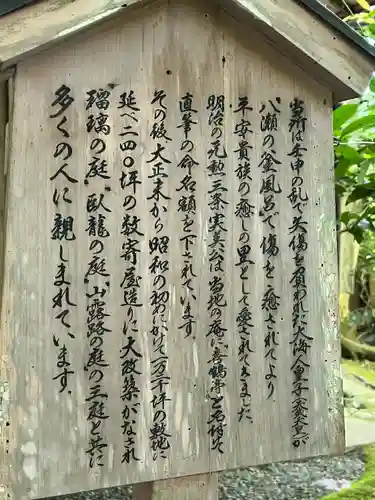 当所は壬申の乱で矢傷を負われた大海人皇子(天武天皇)が
八瀬の“釜風呂”で傷を癒されてより
平安貴族の癒しの里として愛されてきました。
明治の元勲 三条実美公は当地の庵に“喜鶴亭”と名付けて
直筆の命名額を下されています。
その後 大正末から昭和の初めにかけて一万二千坪の敷地に
延べ二四〇坪の数寄屋造りに大改築がなされ
“瑠璃の庭”“臥龍の庭”“山露路の庭”の三庭と共に
多くの人に親しまれています。